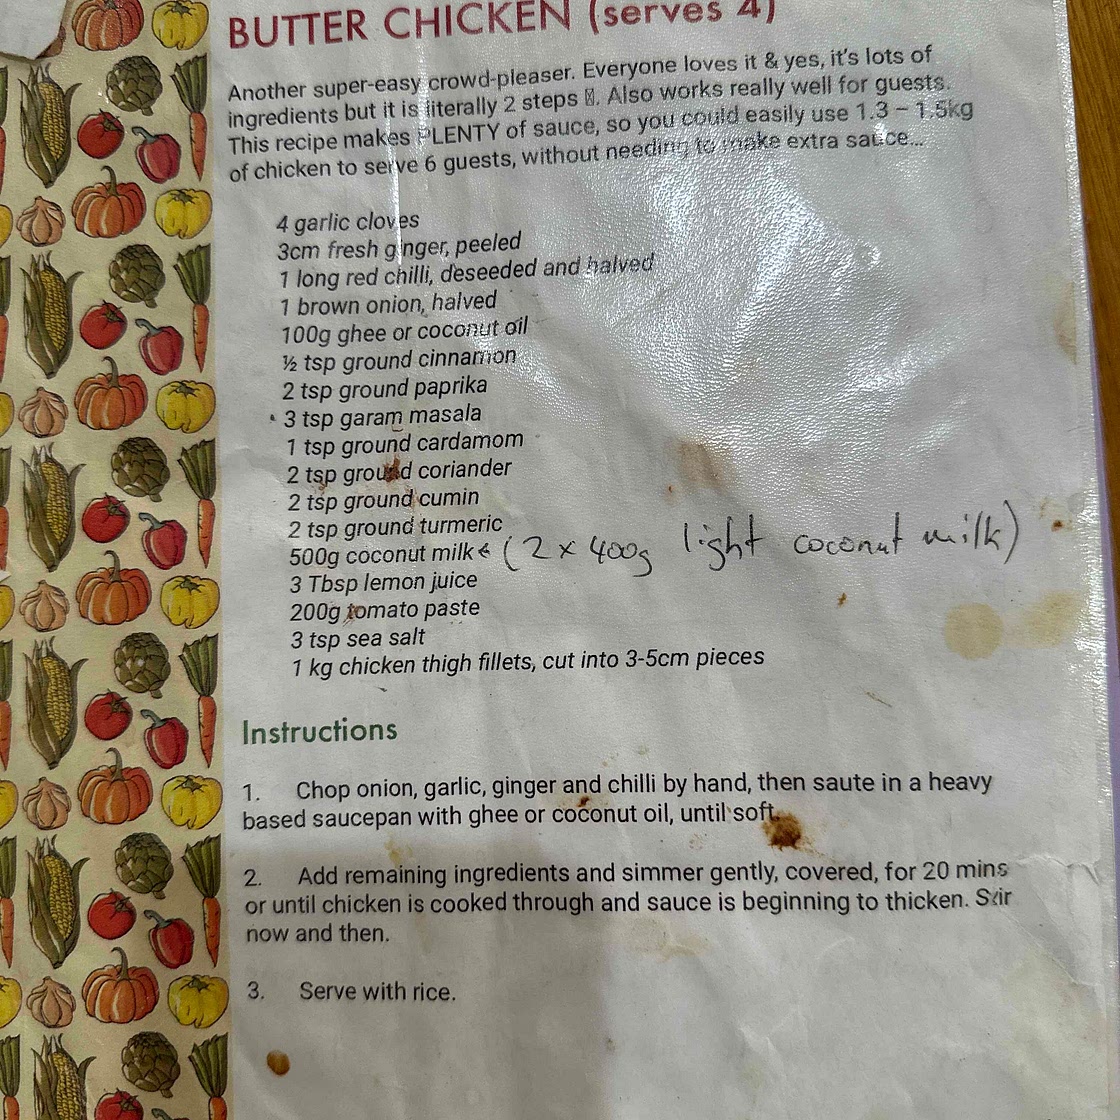 BUTTER CHICKEN (serves 4)
Another super-easy crowd-pleaser. Everyone loves it & yes, it's lots of
ingredients but it is literally 2 steps . Also works really well for guests.
This recipe makes PLENTY of sauce, so you could easily use 1.3 – 1.5kg
of chicken to serve 6 guests, without needing to make extra sauce...
4 garlic cloves
3cm fresh ginger, peeled
1 long red chilli, deseeded and halved
1 brown onion, halved
100g ghee or coconut oil
½ tsp ground cinnamon
2 tsp ground paprika
3 tsp garam masala
1 tsp ground cardamom
2 tsp ground coriander
2 tsp ground cumin
2 tsp ground turmeric
500g coconut milk ← (2 x 400g light coconut milk)
3 Tbsp lemon juice
200g tomato paste
3 tsp sea salt
1 kg chicken thigh fillets, cut into 3-5cm pieces
Instructions
1. Chop onion, garlic, ginger and chilli by hand, then saute in a heavy
based saucepan with ghee or coconut oil, until soft.
2. Add remaining ingredients and simmer gently, covered, for 20 mins
or until chicken is cooked through and sauce is beginning to thicken. Stir
now and then.
3. Serve with rice.